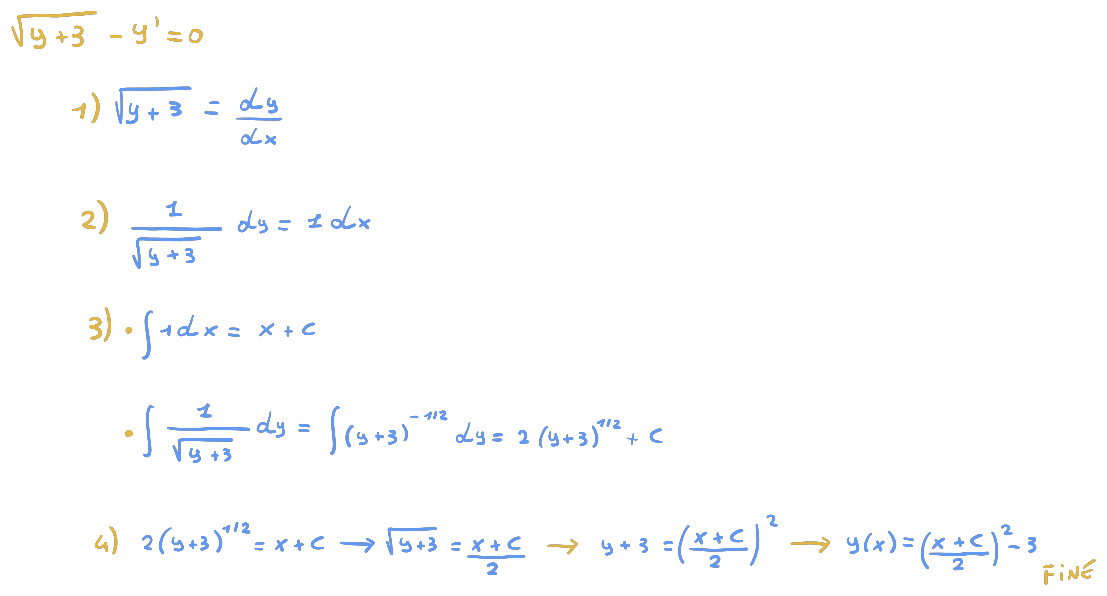 √(y+3) - y' = 0
1) √(y+3) = dy/dx
2) 1/√(y+3) dy = 1 dx
3) • ∫ 1 dx = x + c
• ∫ 1/√(y+3) dy = ∫ (y+3)^(-1/2) dy = 2 (y+3)^(1/2) + C
4) 2(y+3)^(1/2) = x + C → √(y+3) = (x+C)/2 → y + 3 = ((x+C)/2)^2 → y(x) = ((x+C)/2)^2 - 3
FINE